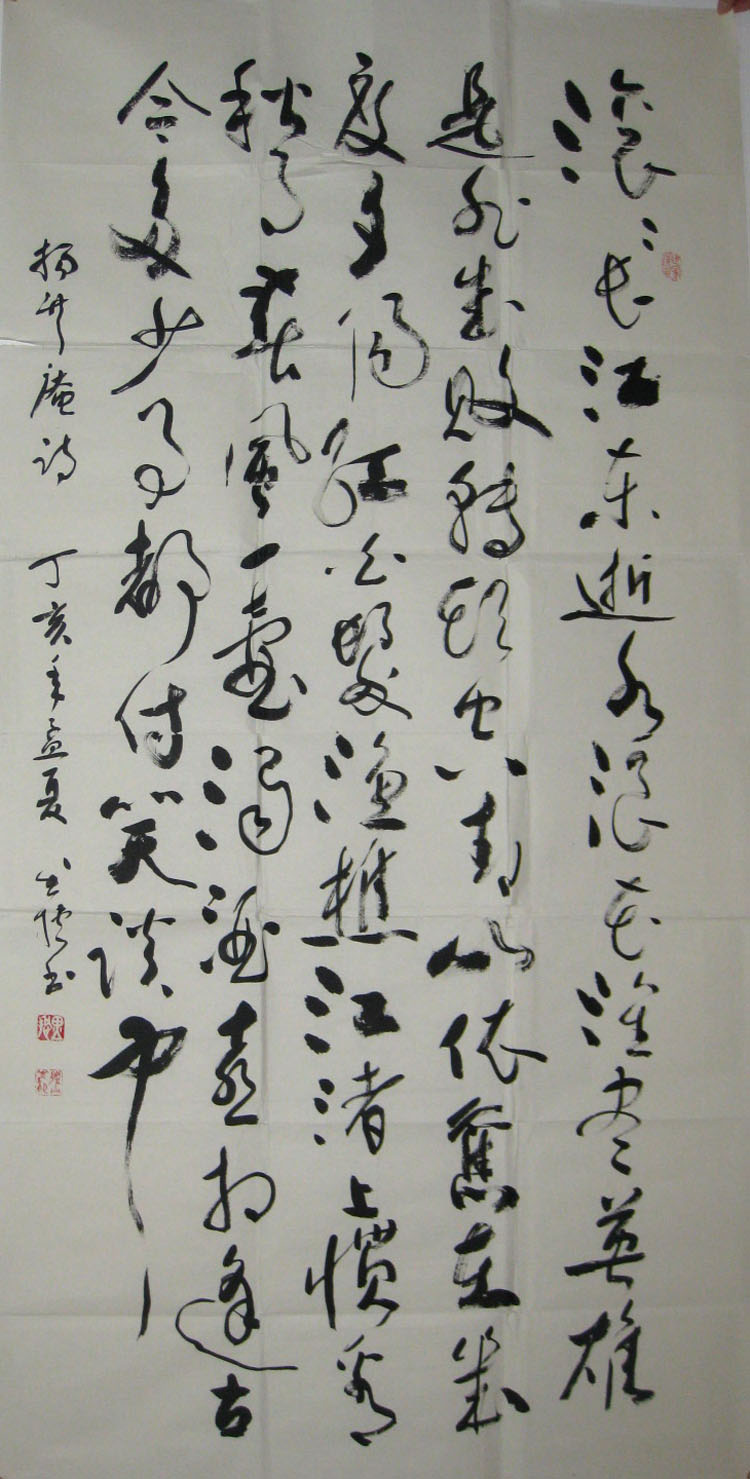 滚滚长江东逝水浪花淘尽英雄
是非成败转头空青山依舊在几
度夕阳红白髮渔樵江渚上惯看
秋月春風一壶浊酒喜相逢古
今多少事都付笑谈中
杨升庵诗 丁亥年孟夏 书